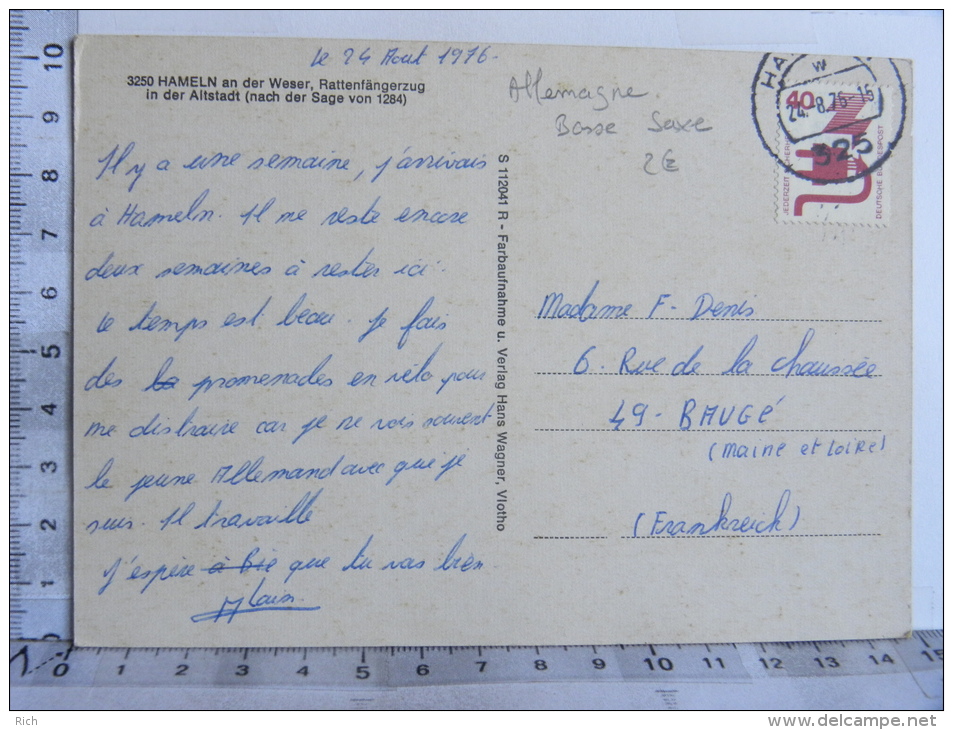 le 24 Aout 1976-
3250 HAMELN an der Weser, Rattenfängerzug
in der Altstadt (nach der Sage von 1284)
Il y a une semaine, j'arrivais
à Hameln. Il me reste encore
deux semaines à rester ici.
Le temps est beau. Je fais
des la promenades en vélo pour
me distraire car je ne vois souvent
le jeune Allemand avec qui je
suis. Il travaille
J'espère à Bie que tu vas bien.
Alain
S 112041 R - Farbaufnahme u. Verlag Hans Wagner, Vlotho
Allemagne.
Basse Saxe
2€
HA
W
24.-8.76-16
325
40
JEDERZEIT SICHERHEIT
DEUTSCHE BUNDESPOST
Madame F- Denis
6. Rue de la chaussée
49- BAUGÉ
(Maine et Loire)
(Frankreich)
10
9
8
7
6
5
4
3
2
1
0
0 1 2 3 4 5 6 7 8 9 10 11 12 13 14 15
Rich
delcampe.net